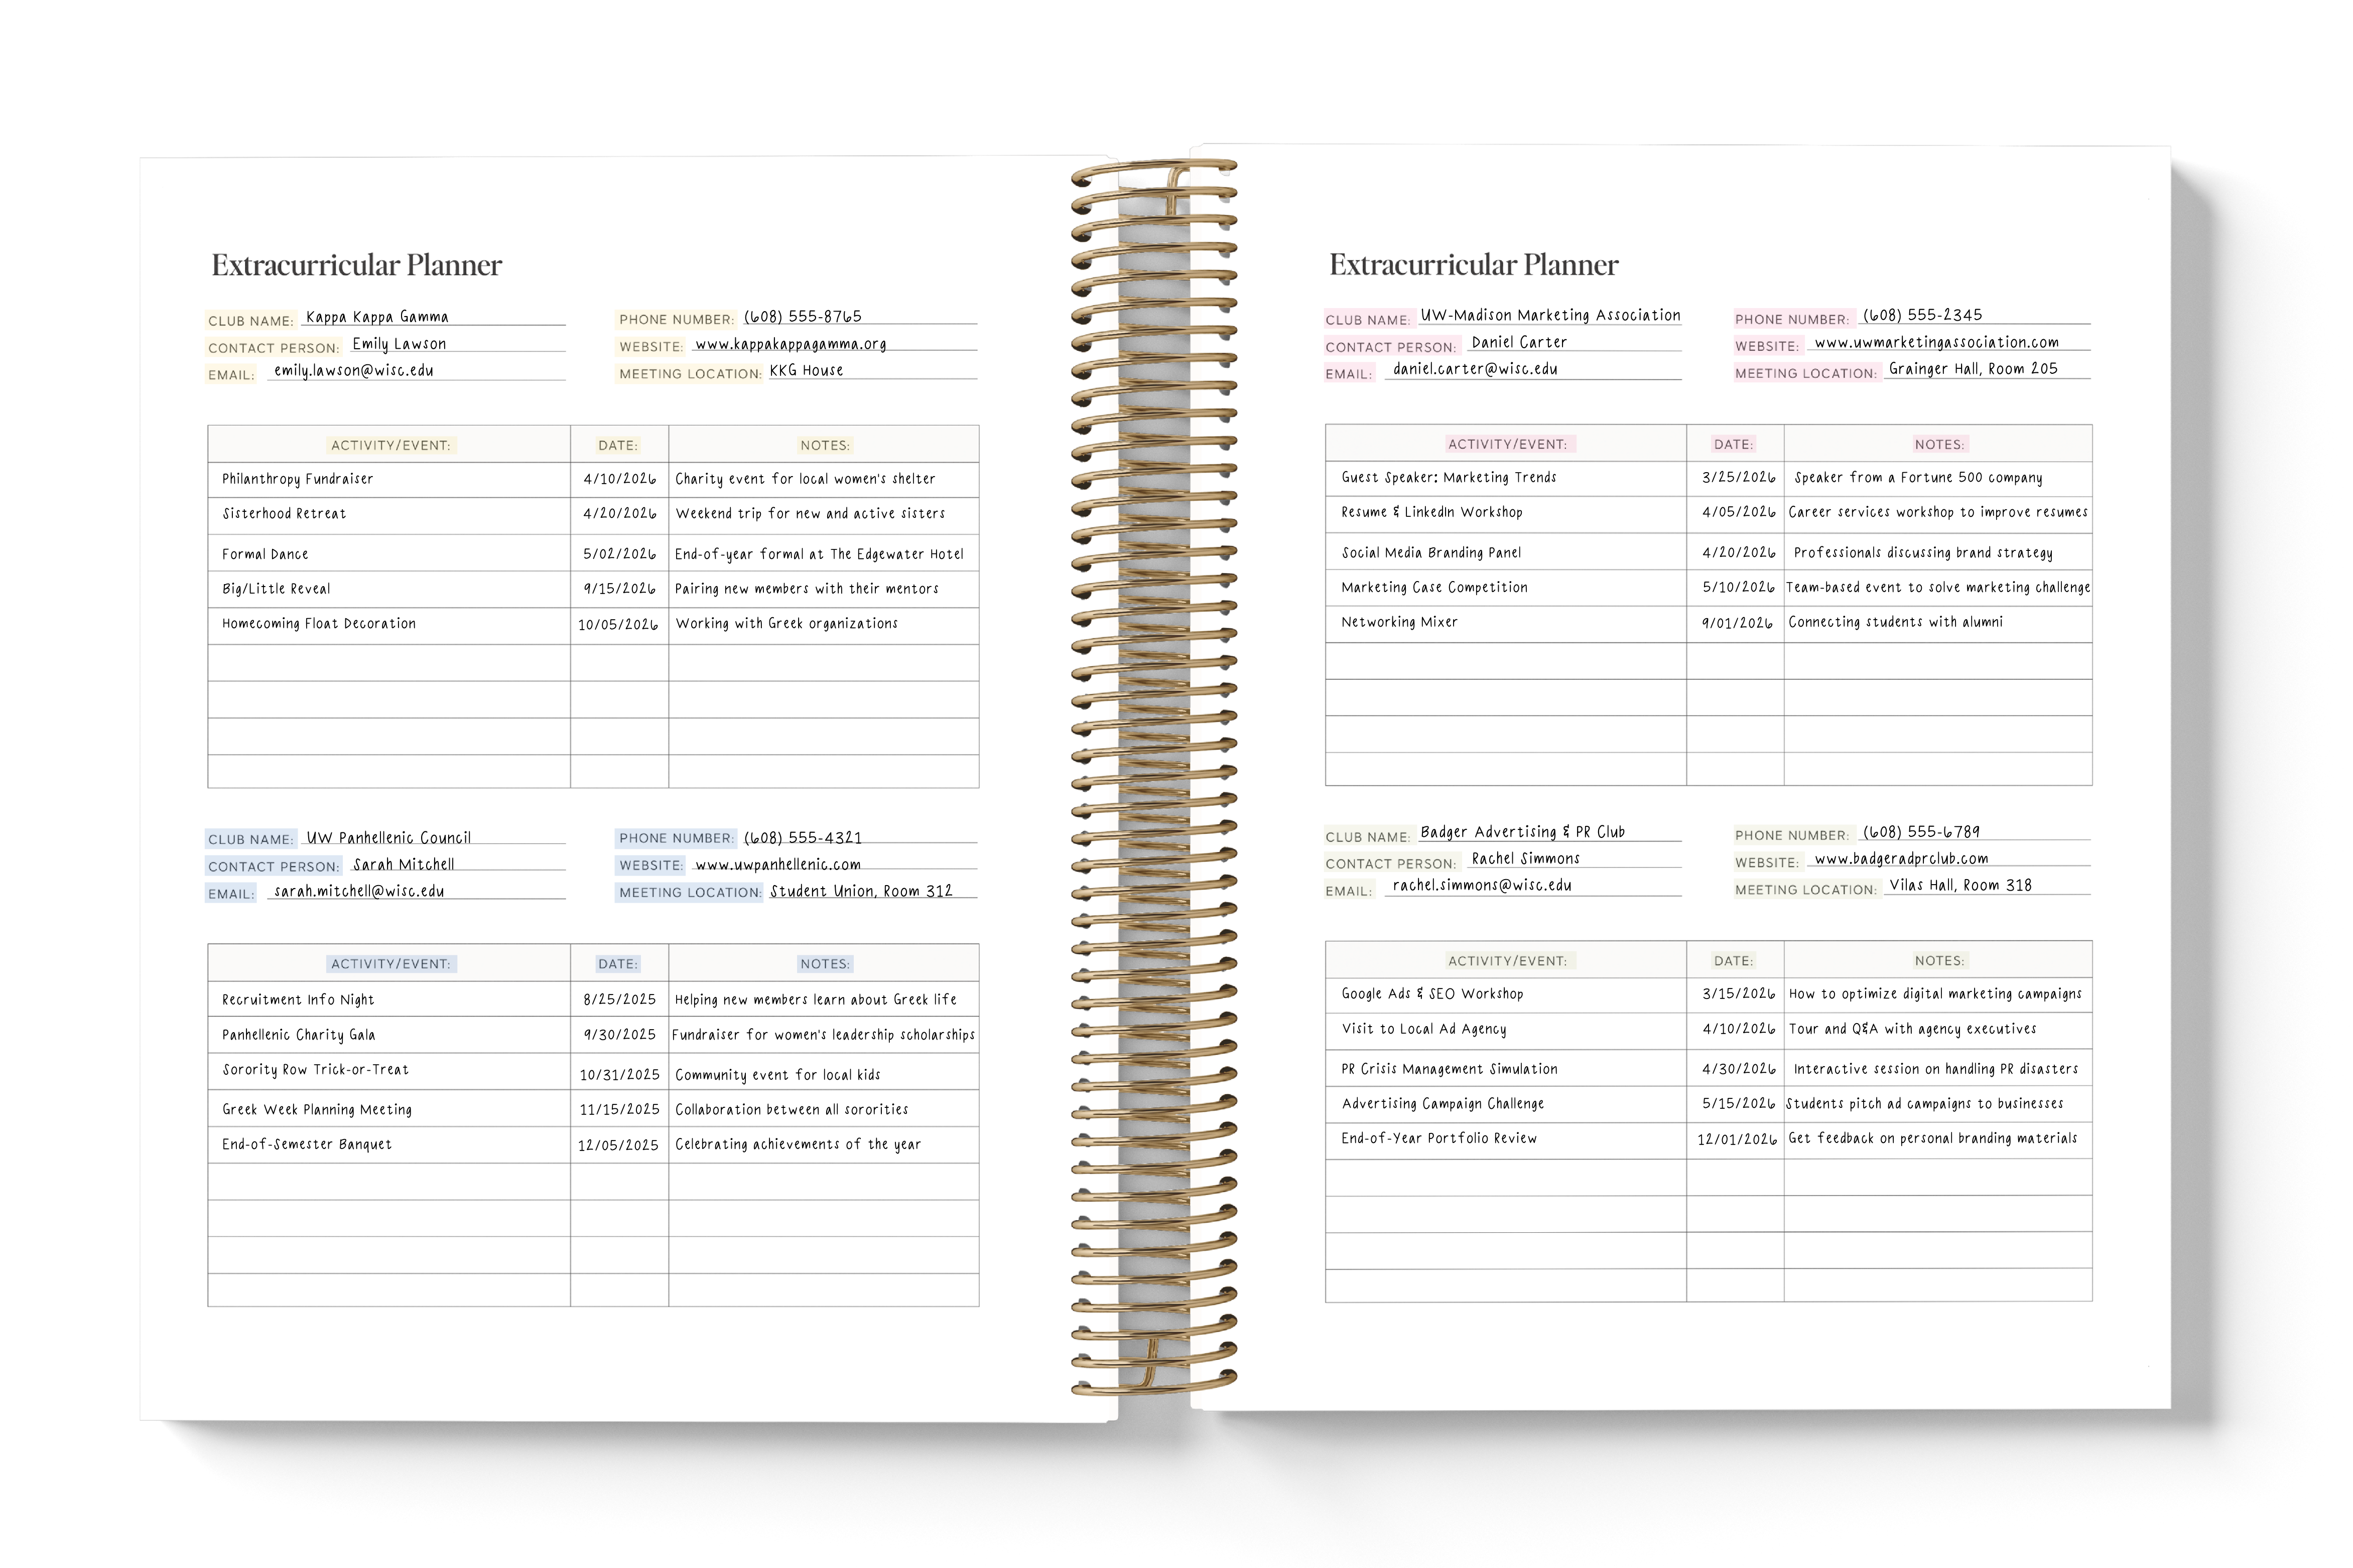 Extracurricular Planner
CLUB NAME: Kappa Kappa Gamma
PHONE NUMBER: (608) 555-8765
CONTACT PERSON: Emily Lawson
WEBSITE: www.kappakappagamma.org
EMAIL: emily.lawson@wisc.edu
MEETING LOCATION: KKG House
ACTIVITY/EVENT: DATE: NOTES:
Philanthropy Fundraiser 4/10/2026 Charity event for local women's shelter
Sisterhood Retreat 4/20/2026 Weekend trip for new and active sisters
Formal Dance 5/02/2026 End-of-year formal at The Edgewater Hotel
Big/Little Reveal 9/15/2026 Pairing new members with their mentors
Homecoming Float Decoration 10/05/2026 Working with Greek organizations
CLUB NAME: UW Panhellenic Council
PHONE NUMBER: (608) 555-4321
CONTACT PERSON: Sarah Mitchell
WEBSITE: www.uwpanhellenic.com
EMAIL: sarah.mitchell@wisc.edu
MEETING LOCATION: Student Union, Room 312
ACTIVITY/EVENT: DATE: NOTES:
Recruitment Info Night 8/25/2025 Helping new members learn about Greek life
Panhellenic Charity Gala 9/30/2025 Fundraiser for women's leadership scholarships
Sorority Row Trick-or-Treat 10/31/2025 Community event for local kids
Greek Week Planning Meeting 11/15/2025 Collaboration between all sororities
End-of-Semester Banquet 12/05/2025 Celebrating achievements of the year
Extracurricular Planner
CLUB NAME: UW-Madison Marketing Association
PHONE NUMBER: (608) 555-2345
CONTACT PERSON: Daniel Carter
WEBSITE: www.uwmarketingassociation.com
EMAIL: daniel.carter@wisc.edu
MEETING LOCATION: Grainger Hall, Room 205
ACTIVITY/EVENT: DATE: NOTES:
Guest Speaker: Marketing Trends 3/25/2026 Speaker from a Fortune 500 company
Resume & LinkedIn Workshop 4/05/2026 Career services workshop to improve resumes
Social Media Branding Panel 4/20/2026 Professionals discussing brand strategy
Marketing Case Competition 5/10/2026 Team-based event to solve marketing challenge
Networking Mixer 9/01/2026 Connecting students with alumni
CLUB NAME: Badger Advertising & PR Club
PHONE NUMBER: (608) 555-6789
CONTACT PERSON: Rachel Simmons
WEBSITE: www.badgeradprclub.com
EMAIL: rachel.simmons@wisc.edu
MEETING LOCATION: Vilas Hall, Room 318
ACTIVITY/EVENT: DATE: NOTES:
Google Ads & SEO Workshop 3/15/2026 How to optimize digital marketing campaigns
Visit to Local Ad Agency 4/10/2026 Tour and Q&A with agency executives
PR Crisis Management Simulation 4/30/2026 Interactive session on handling PR disasters
Advertising Campaign Challenge 5/15/2026 Students pitch ad campaigns to businesses
End-of-Year Portfolio Review 12/01/2026 Get feedback on personal branding materials